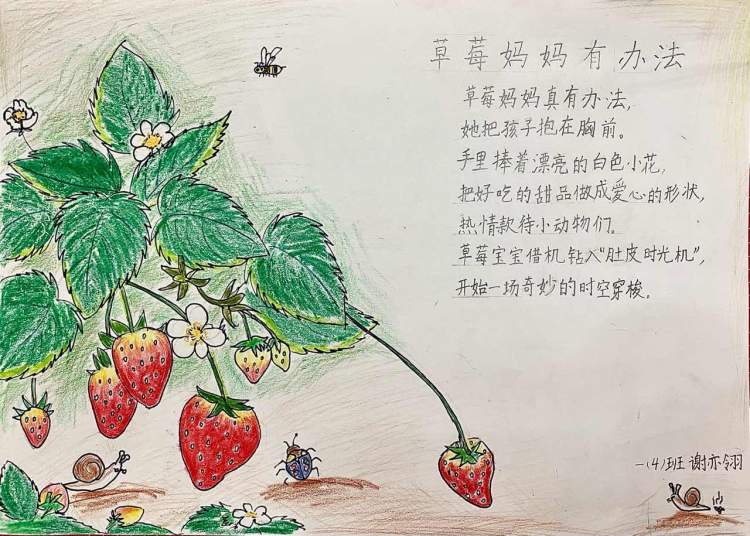 草莓妈妈有办法
草莓妈妈真有办法，
她把孩子抱在胸前。
手里捧着漂亮的白色小花，
把好吃的甜品做成爱心的形状，
热情款待小动物们。
草莓宝宝借机钻入“肚皮时光机”，
开始一场奇妙的时空穿梭。
一(4)班 谢亦翎